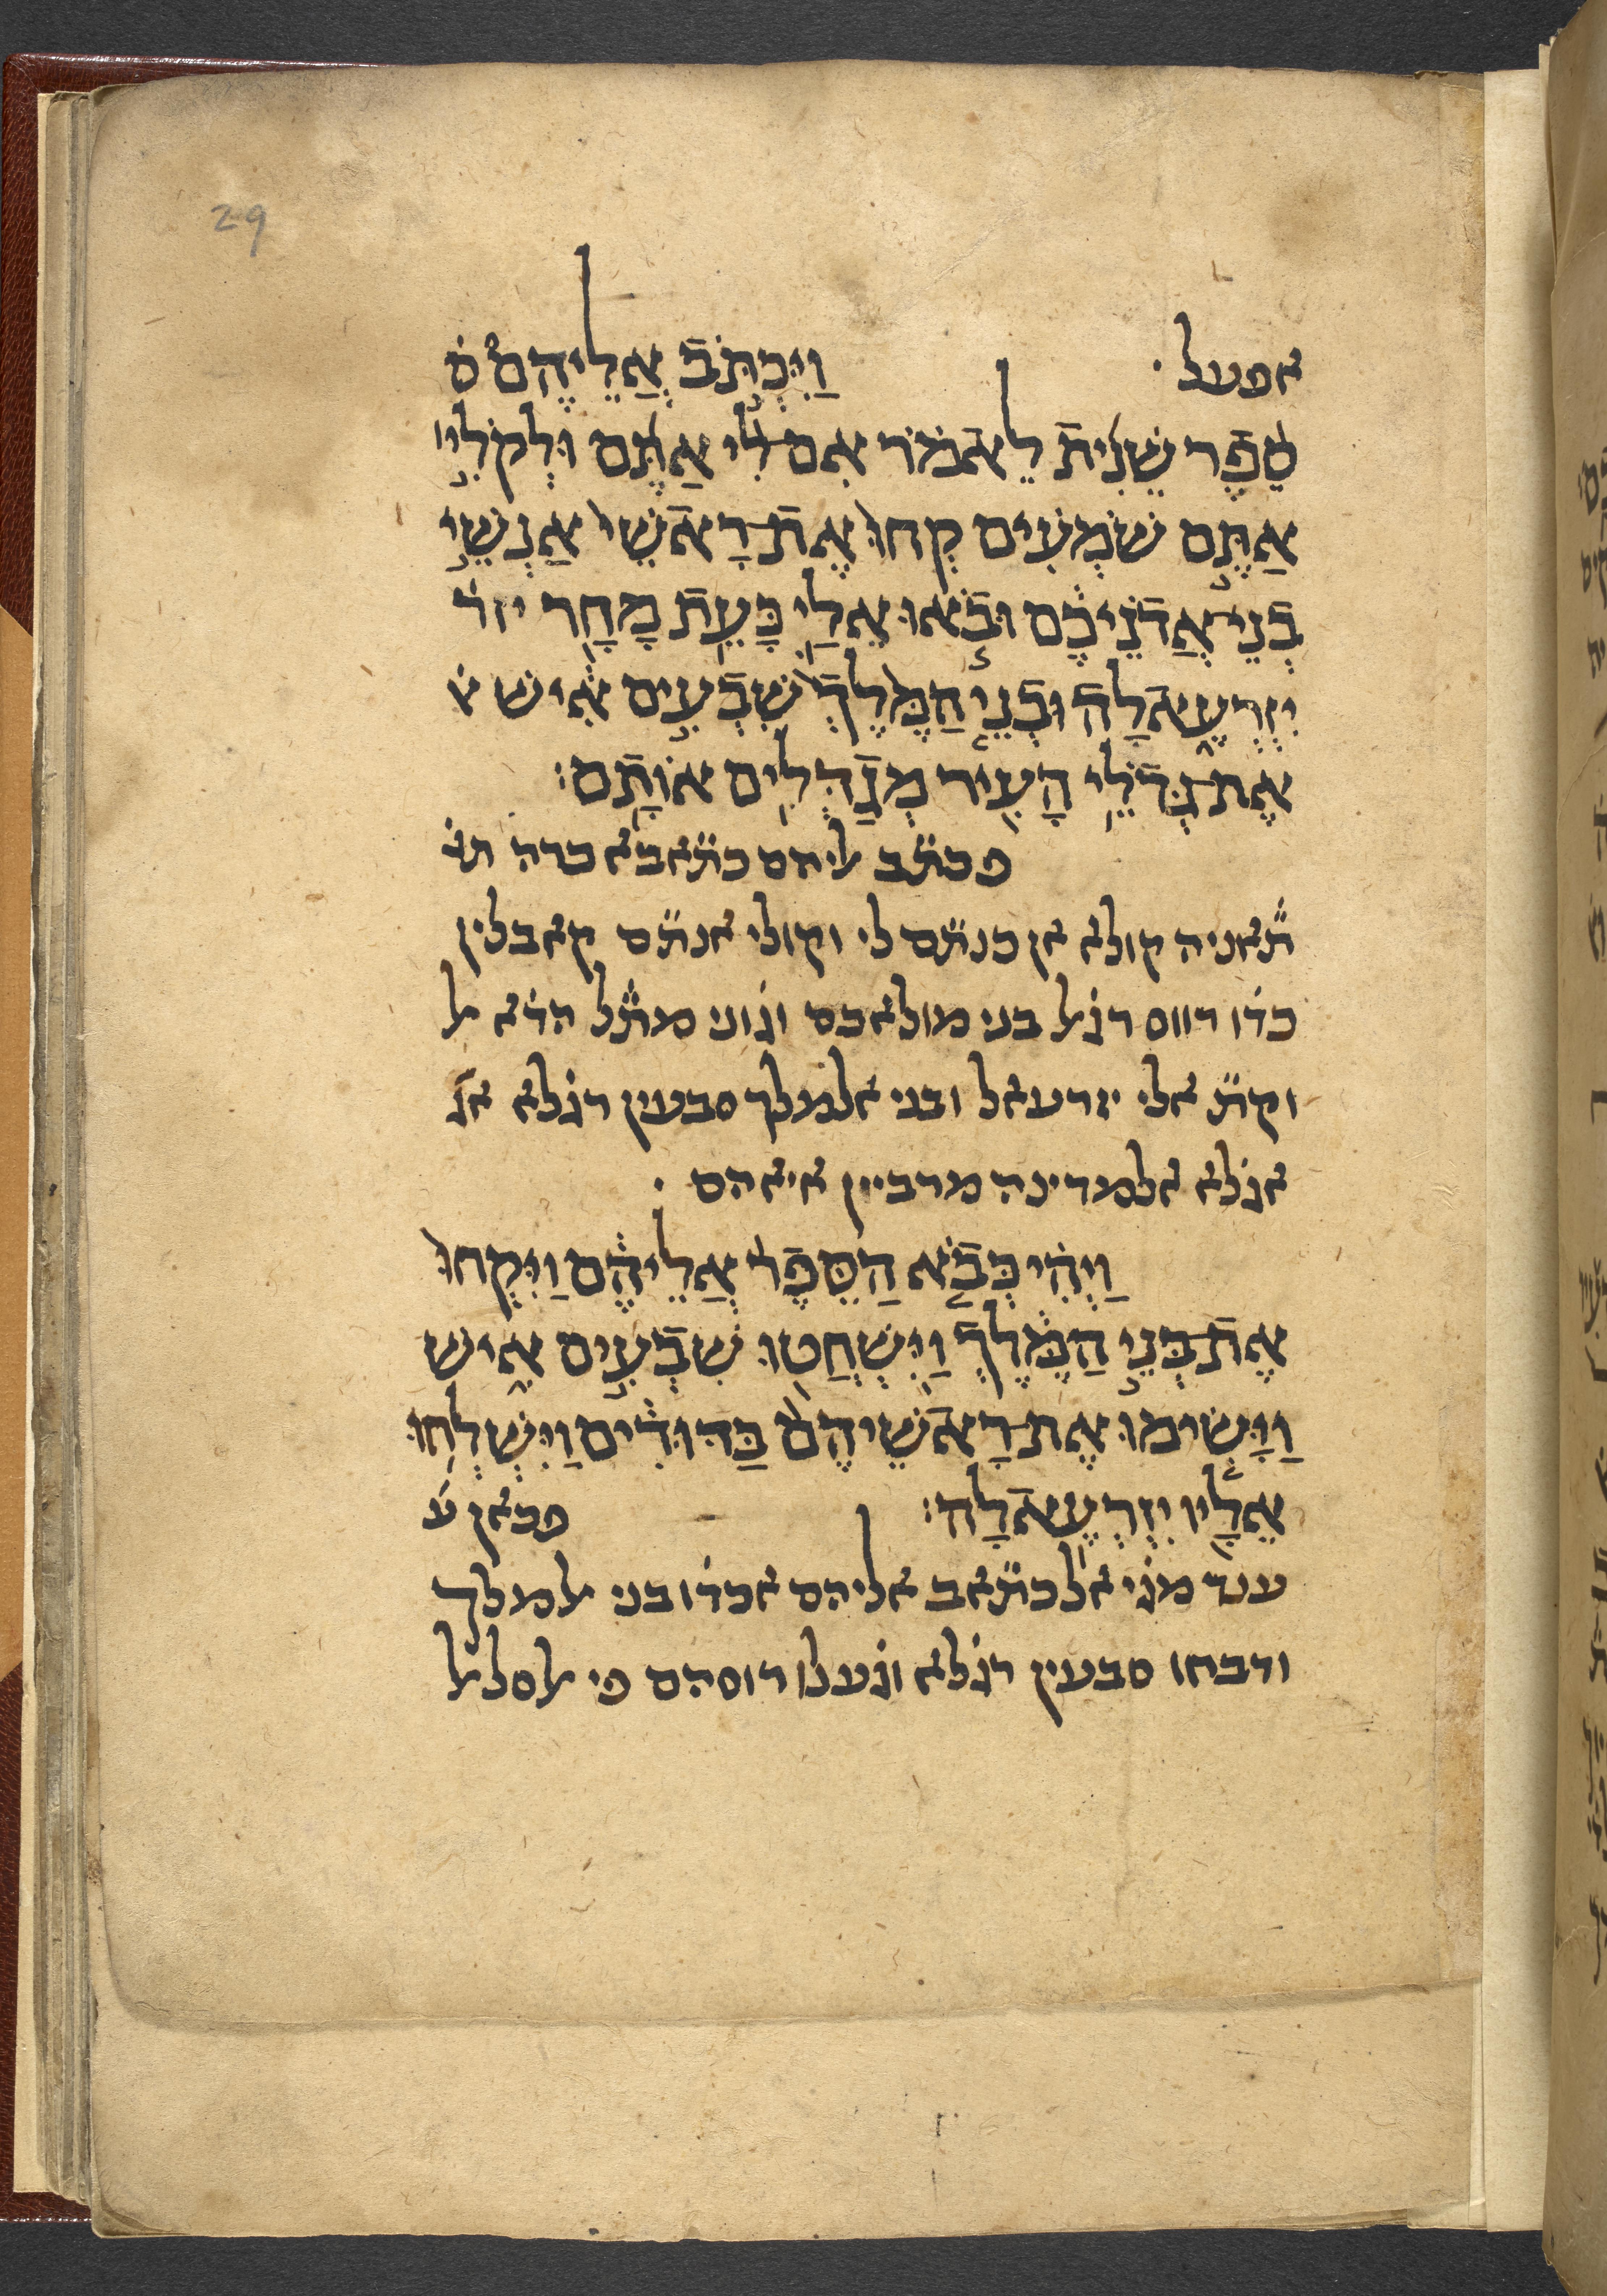 29
אפעל · וַיִּכְתֹּב אֲלֵיהֶם ס
סֵפֶר שֵׁנִית לֵאמֹר אִם לִי אַתֶּם וּלְקֹלִי
אַתֶּם שֹׁמְעִים קְחוּ אֶת רָאשֵׁי אַנְשֵׁי
בְנֵי אֲדֹנֵיכֶם וּבֹאוּ אֵלַי כָּעֵת מָחָר יזר
יִזְרְעֶאלָה וּבְנֵי הַמֶּלֶךְ שִׁבְעִים אִישׁ א
אֶת גְּדֹלֵי הָעִיר מְגַדְּלִים אוֹתָם׃
פכתׄב ליהם כתׄאבא כרה תׄ
תׄאניה קולא אן כנתׄם לי וקולי אנתׄם קאבלין
כדׄו רווס רגׄאל בני מולאכם וגׄוני מתׄל הדׄא אל
וקתׄ אלי יזרעאל ובני אלמלך סבעין רגׄלא אגׄ
אגׄלא אלמדינה מרביין איאהם ·
וַיְהִי כְּבֹא הַסֵּפֶר אֲלֵיהֶם וַיִּקְחוּ
אֶת בְּנֵי הַמֶּלֶךְ וַיִּשְׁחֲטוּ שִׁבְעִים אִישׁ
וַיָּשִׂימוּ אֶת רָאשֵׁיהֶם בַּדּוּדִים וַיִּשְׁלְחוּ
אֵלָיו יִזְרְעֶאלָה׃ פכאן ע
ענד מגׄי אלכתׄאב אליהם אכדׄו בני אלמלך
ודבחו סבעין רגׄלא וגׄעלו רוסהם פי אלסלאל